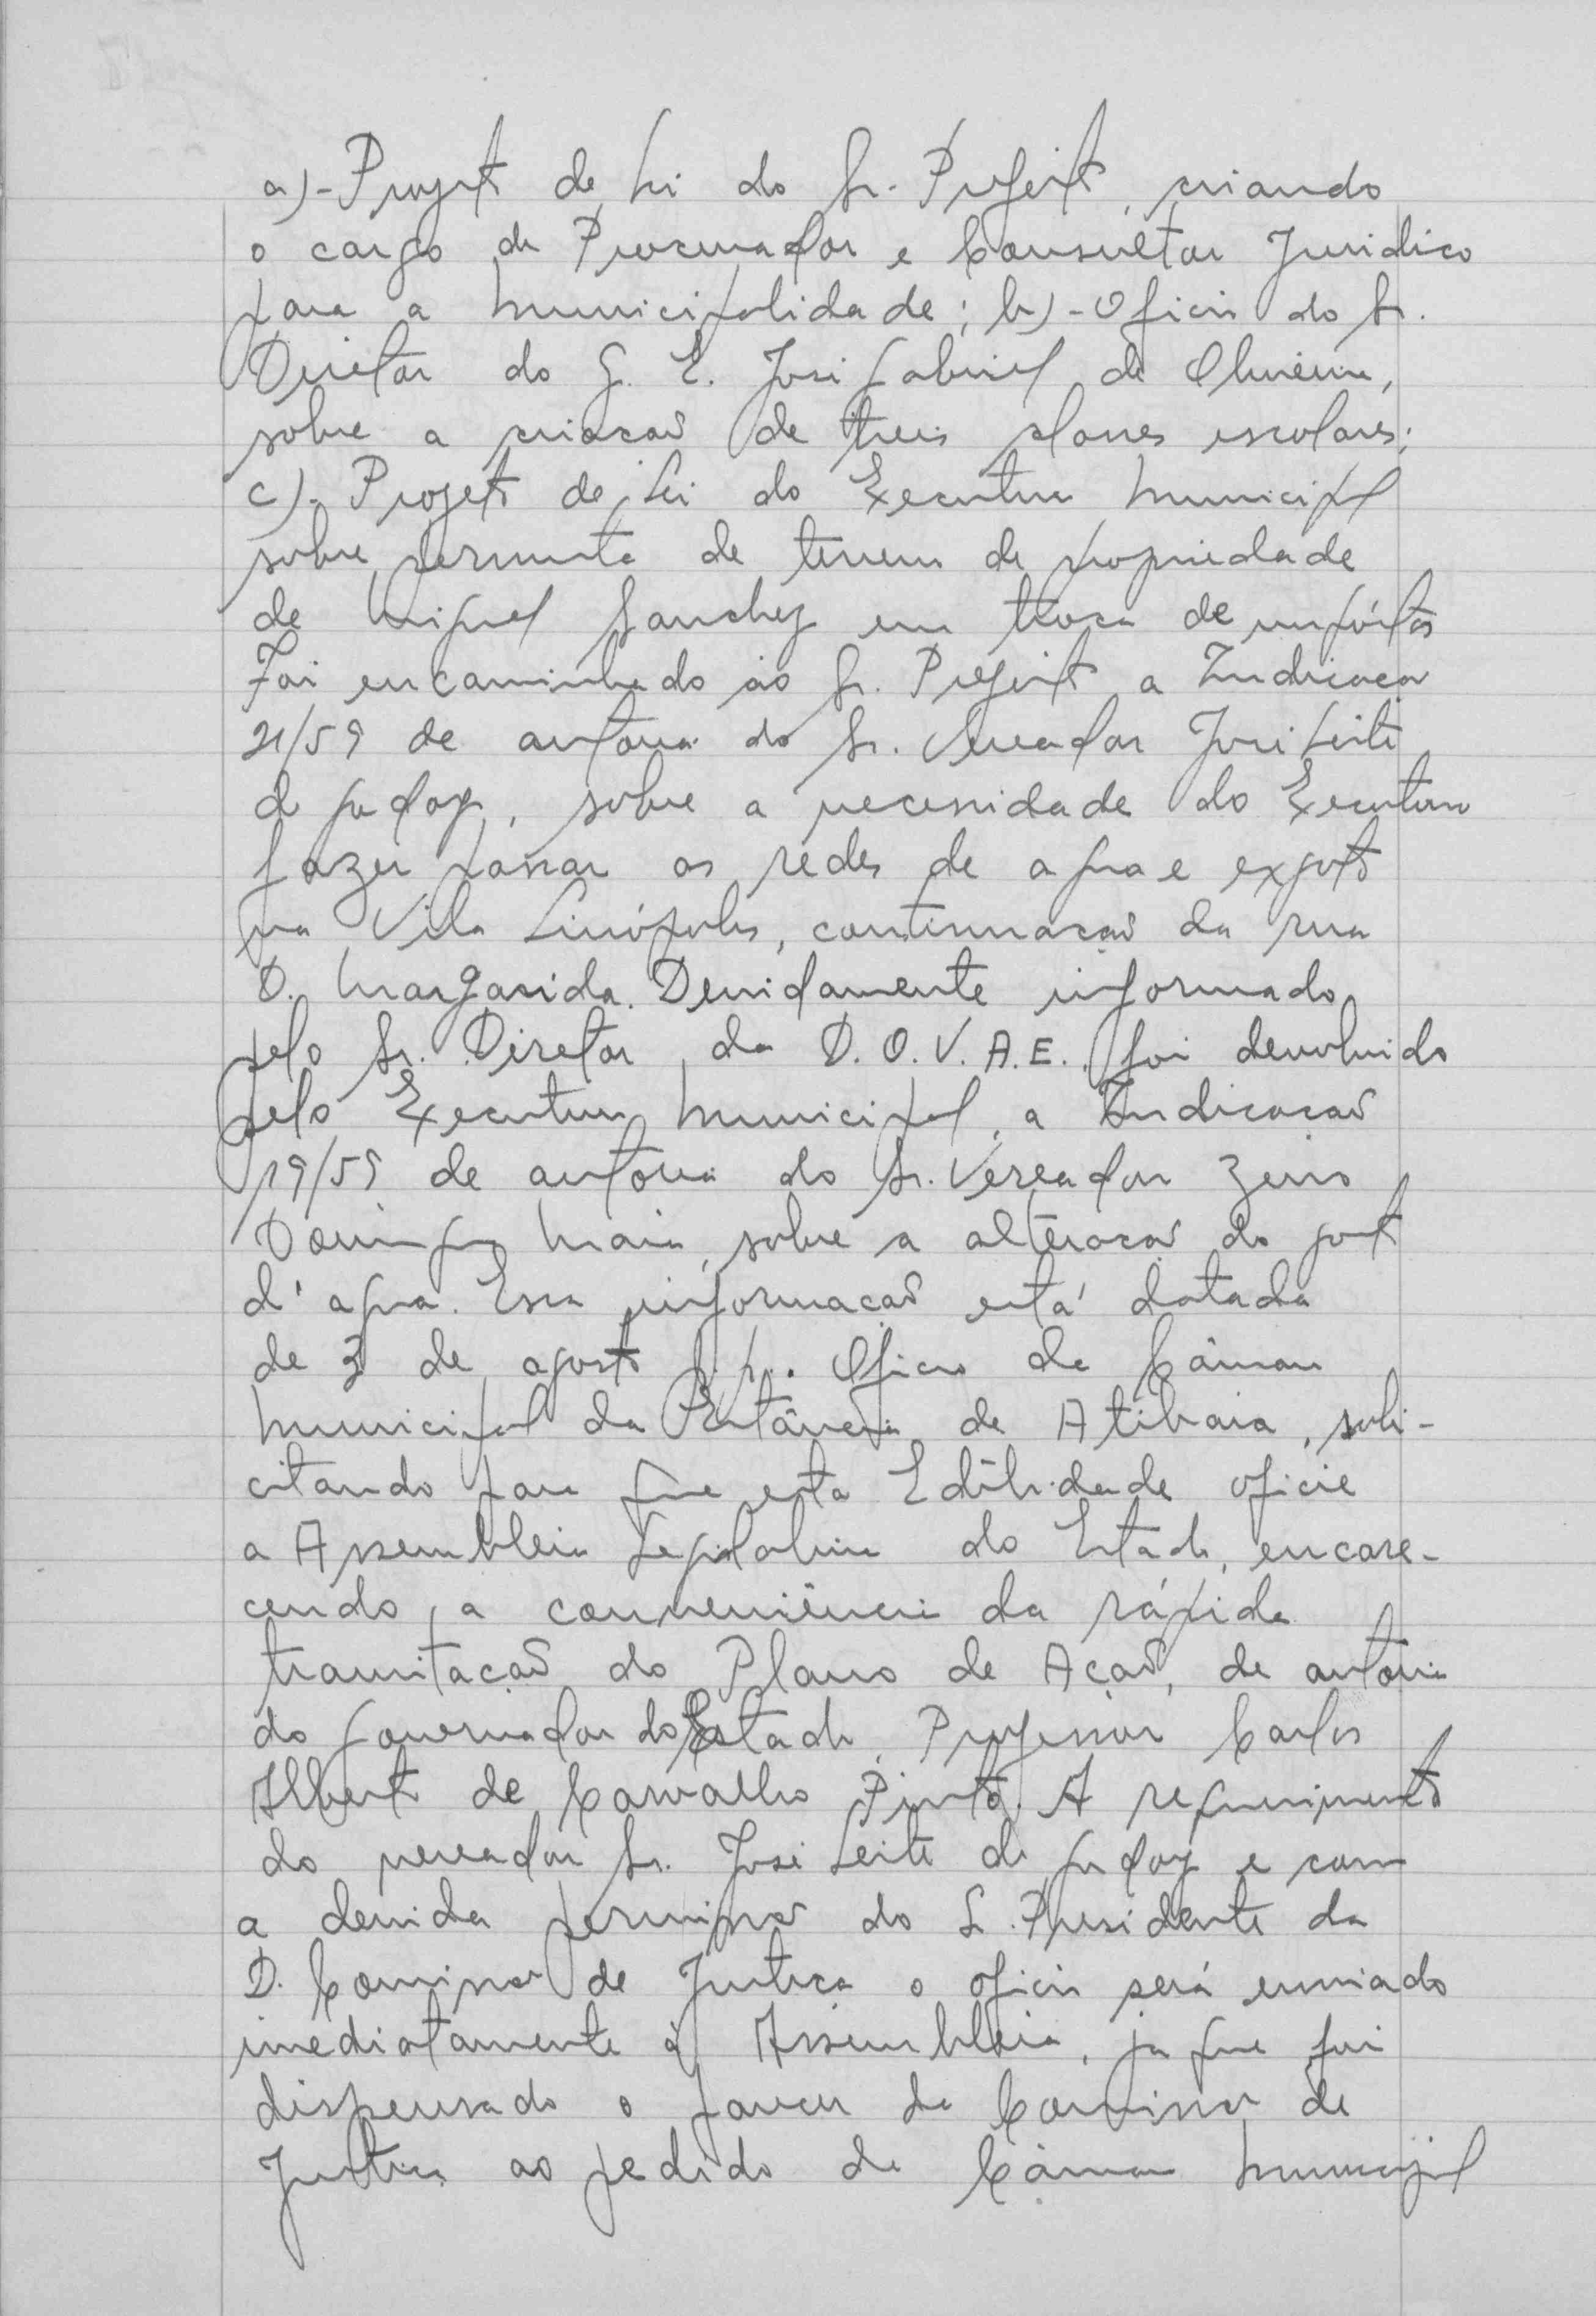 a)-Projeto de Lei do Sr. Prefeito, criando
o cargo de Procurador e Consultor Juridico
para a Municipalidade; b)-Oficio do Sr.
Diretor do G. E. José Gabriel de Oliveira,
sobre a criação de treis classes escolares;
c)- Projeto de Lei do Executivo Municipal
sobre permuta de terreno de propriedade
de Miguel Sanchez em troca de impôstos
Foi encaminhado ao Sr. Prefeito a Indicação
21/59 de autoria do Sr. Vereador José Leite
de Godoy, sobre a necessidade do Executivo
fazer passar as redes de agua e exgoto
na Vila Linópolis, continuação da rua
D. Margarida. Devidamente informado
pelo Sr. Diretor da D.O.V.A.E. foi devolvido
pelo Executivo Municipal, a Indicação
19/59 de autoria do Sr. Vereador Zeno
Domingos Maia, sobre a alteração do
d'agua. Essa informação está datada
de 3 de agosto p.p.. Oficio da Câmara
Municipal da Estância de Atibaia, soli-
citando para que esta Edilidade oficie
a Assembleia Legislativa do Estado, encare-
cendo, a conveniência da rápida
tramitação do Plano de Ação, de autoria
do Governador do Estado, Professor Carlos
Alberto de Carvalho Pinto. A requerimento
do vereador Sr. José Leite de Godoy e com
a devida permissão do S. Presidente da
D. Comissão de Justiça o oficio será enviado
imediatamente á Assembleia, ja que foi
dispensado o parecer da Comissão de
Justiça ao pedido da Câmara Municipal